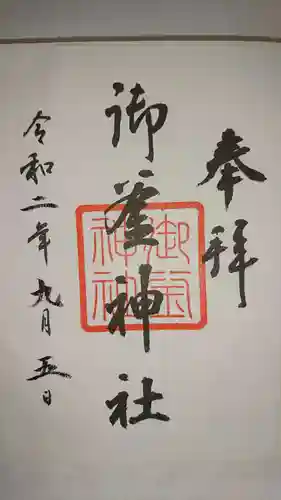 奉拝
御釜神社
御釜
神社
令和二年九月五日